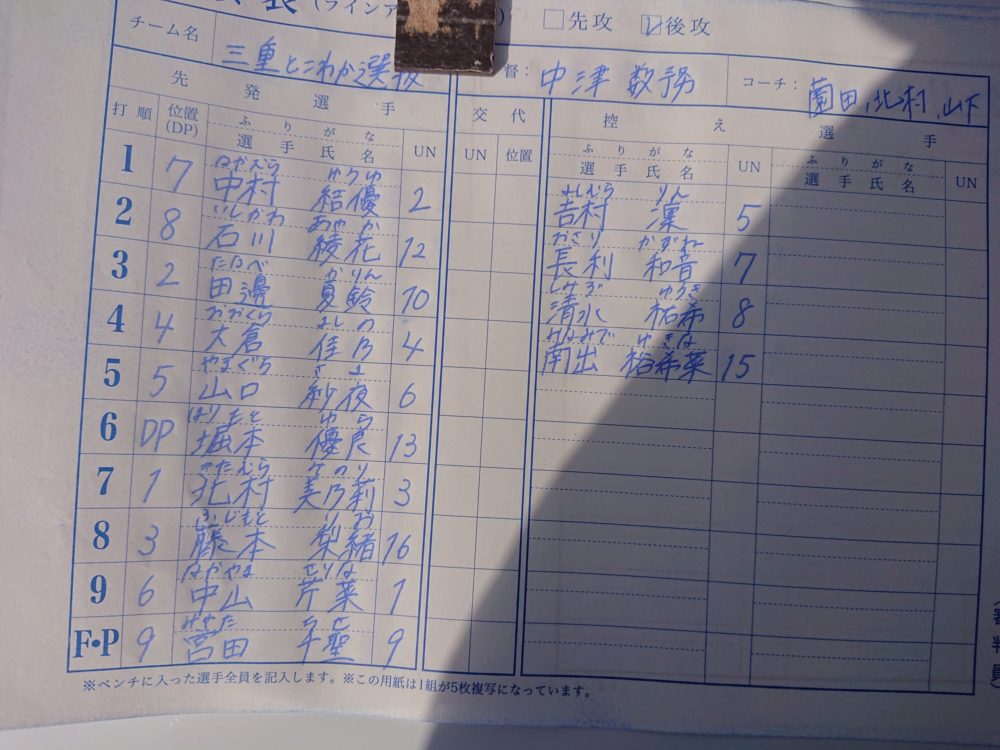 □先攻 ☑後攻
チーム名 三重とこわか選抜 督： 中津 数 コーチ： 薗田，北村，山下
先発選手 交代 控え選手
打順 位置(DP) ふりがな 選手氏名 UN UN 位置 ふりがな 選手氏名 UN ふりがな 選手氏名 UN
なかむら よしむら りん
1 7 中村 結優 2 吉村 凜 5
いしかわ あやか かさり かずね
2 8 石川 綾花 12 長利 和音 7
たなべ かりん しみず ゆうき
3 2 田邊 鈴 10 清水 祐希 8
おおくら よしの みなみで ゆきな
4 4 大倉 佳乃 4 南出 裕希菜 15
やまぐち さよ
5 5 山口 紗夜 6
ほりもと ゆら
6 DP 堀本 優良 13
きたむら みのり
7 1 北村 美乃莉 3
ふじもと りお
8 3 藤本 梨緒 16
なかやま せりな
9 6 中山 芹菜 1
みやた ちせ
F•P 9 宮田 千聖 9
※ベンチに入った選手全員を記入します。※この用紙は1組が5枚複写になっています。